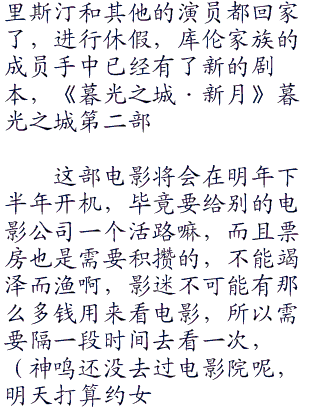 里斯汀和其他的演员都回家
了，进行休假，库伦家族的
成员手中已经有了新的剧
本，《暮光之城·新月》暮
光之城第二部
这部电影将会在明年下
半年开机，毕竟要给别的电
影公司一个活路嘛，而且票
房也是需要积攒的，不能竭
泽而渔啊，影迷不可能有那
么多钱用来看电影，所以需
要隔一段时间去看一次，
（神鸣还没去过电影院呢，
明天打算约女